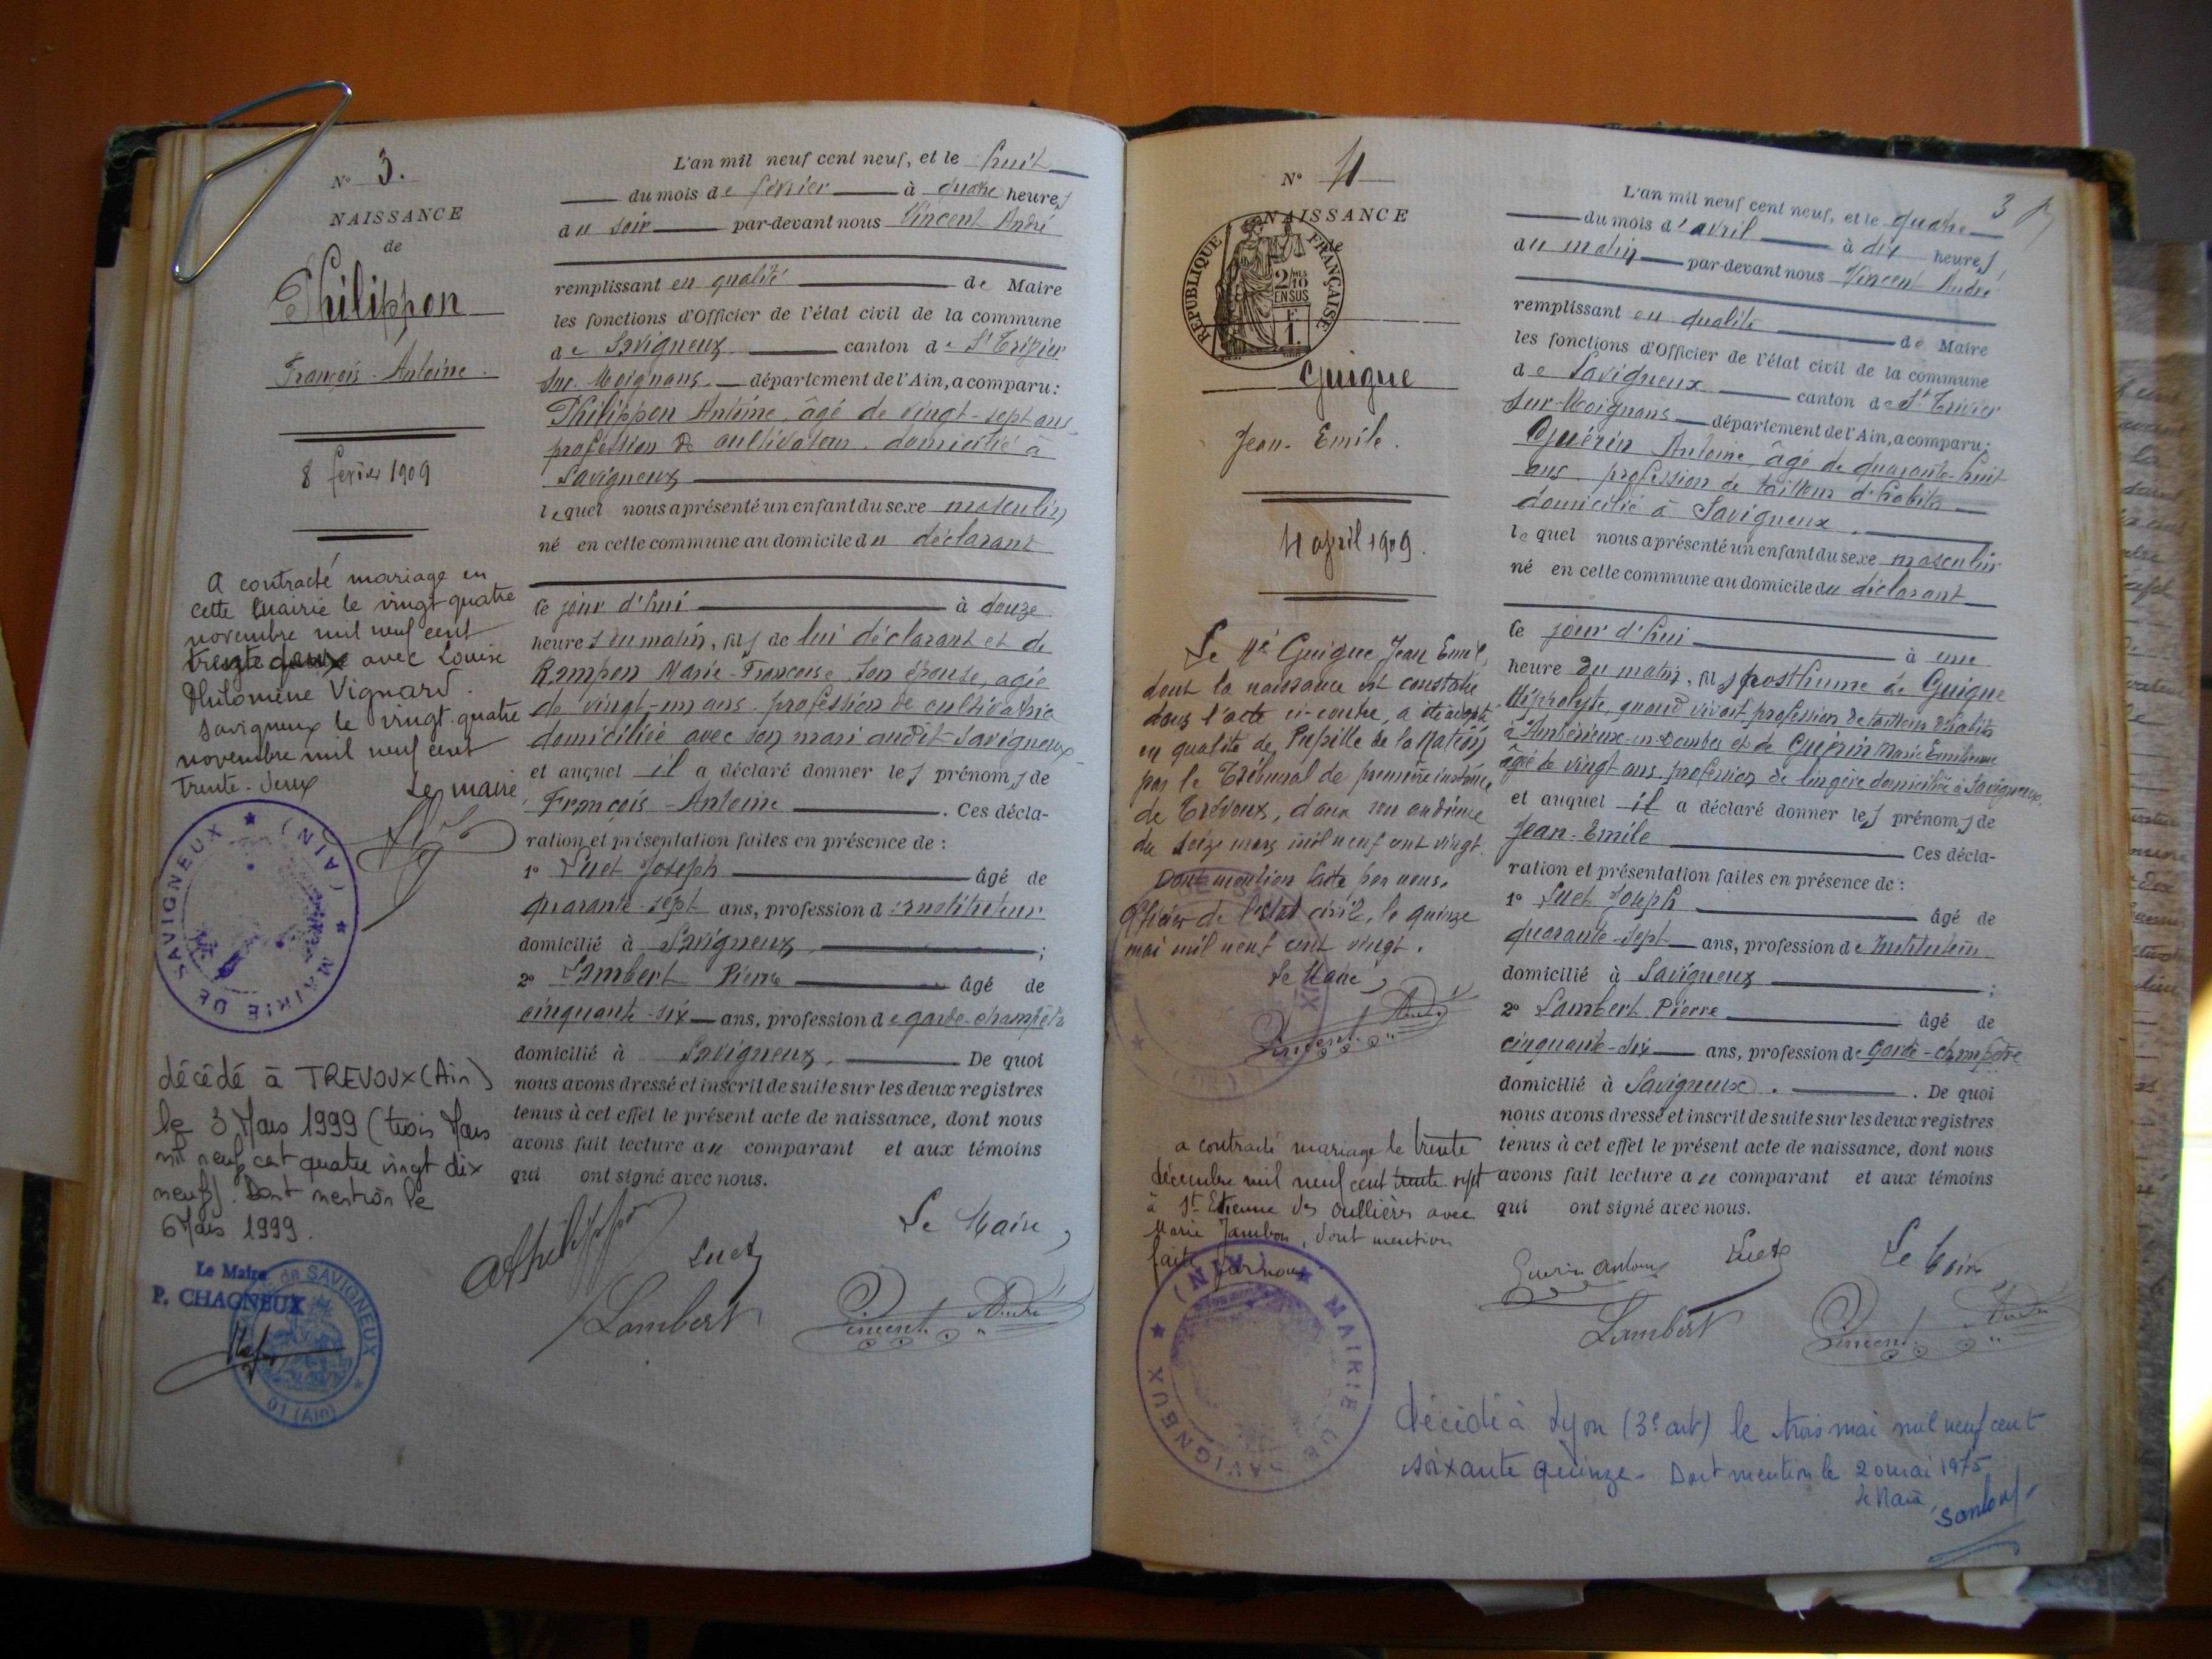 N° 3.
NAISSANCE
de
Philippon
François-Antoine.
8 février 1909
A contracté mariage en
cette Mairie le vingt-quatre
novembre mil neuf cent
trente deux avec Louise
Philomène Vignard.
Savigneux le vingt-quatre
novembre mil neuf cent
trente-deux
Le maire
MAIRIE DE SAVIGNEUX (AIN)
décédé à TREVOUX (Ain)
le 3 Mars 1999 (trois Mars
mil neuf cent quatre vingt dix
neuf). Dont mention le
6 Mars 1999.
Le Maire
P. CHAGNEUX
de SAVIGNEUX
01 (Ain)
L'an mil neuf cent neuf, et le huit
du mois de février à quatre heures
du soir par-devant nous Vincent André
remplissant en qualité de Maire
les fonctions d'Officier de l'état civil de la commune
de Savigneux canton de St Trivier
sur-Moignans département de l'Ain, a comparu:
Philippon Antoine, âgé de vingt-sept ans
profession de cultivateur domicilié à
Savigneux
lequel nous a présenté un enfant du sexe masculin
né en cette commune au domicile du déclarant
ce jour d'hui à douze
heures du matin, fils de lui déclarant et de
Rampon Marie-Françoise son épouse, agée
de vingt-un ans. profession de cultivatrice
domiciliée avec son mari audit-Savigneux
et auquel il a déclaré donner les prénoms de
François-Antoine. Ces décla-
ration et présentation faites en présence de :
1° Suet Joseph âgé de
quarante-sept ans, profession d'instituteur
domicilié à Savigneux ;
2° Lambert Pierre âgé de
cinquante-six ans, profession de garde-champêtre
domicilié à Savigneux. De quoi
nous avons dressé et inscrit de suite sur les deux registres
tenus à cet effet le présent acte de naissance, dont nous
avons fait lecture au comparant et aux témoins
qui ont signé avec nous.
Le Maire,
Suet
Lambert
Vincent André
3
N° 4
NAISSANCE
de
REPUBLIQUE FRANÇAISE
2/10
EN SUS
F
1.
Guigue
Jean-Emile.
4 avril 1909.
Le né Guigue Jean Emile,
dont la naissance est constatée
dans l'acte ci-contre, a été adopté
en qualité de Pupille de la Nation
par le Tribunal de première instance
de Trévoux, dans son audience
du seize mars mil neuf cent vingt.
Dont mention faite par nous,
Officier de l'état civil, le quinze
mai mil neuf cent vingt.
Le Maire,
Vincent André
a contracté mariage le trente
décembre mil neuf cent trente-sept
à St Etienne des Oullières avec
Marie Jambon, dont mention
faite par nous
MAIRIE DE SAVIGNEUX (AIN)
L'an mil neuf cent neuf, et le quatre
du mois d'avril à dix heures
du matin par-devant nous Vincent André
remplissant en qualité de Maire
les fonctions d'Officier de l'état civil de la commune
de Savigneux canton de St Trivier
sur-Moignans département de l'Ain, a comparu:
Guérin Antoine âgé de quarante-huit
ans profession de tailleur d'habits
domicilié à Savigneux.
lequel nous a présenté un enfant du sexe masculin
né en cette commune au domicile du déclarant
ce jour d'hui à une
heure du matin, fils posthume de Guigue
Hippolyte, quand vivait profession de tailleur d'habits
à Ambérieux-en-Dombes et de Guérin Marie
âgée de vingt ans profession de lingère domiciliée à Savigneux
et auquel il a déclaré donner les prénoms de
Jean-Emile Ces décla-
ration et présentation faites en présence de :
1° Suet Joseph âgé de
quarante-sept ans, profession de Instituteur
domicilié à Savigneux ;
2° Lambert Pierre âgé de
cinquante-six ans, profession de Garde-champêtre
domicilié à Savigneux. De quoi
nous avons dressé et inscrit de suite sur les deux registres
tenus à cet effet le présent acte de naissance, dont nous
avons fait lecture au comparant et aux témoins
qui ont signé avec nous.
Guerin Antoine Suet Le Maire
Lambert
Vincent André
décédé à Lyon (3e art) le trois mai mil neuf cent
soixante quinze. Dont mention le 20 mai 1975
Le Maire,